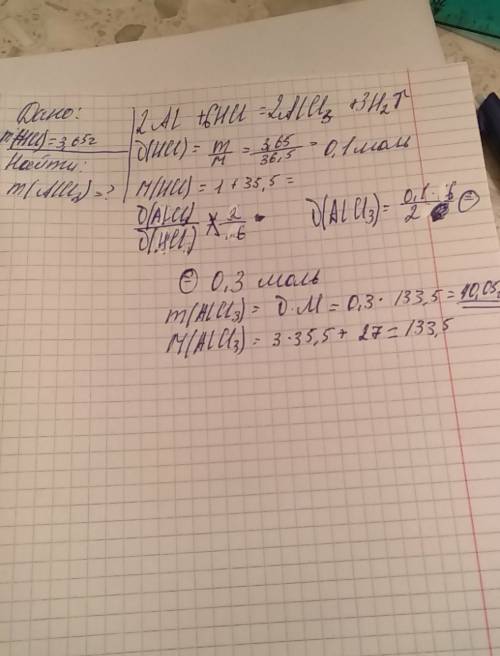 Дано:
m(HCl)=3,65г
Найти:
m(AlCl₃)=?
2Al + 6HCl = 2AlCl₃ + 3H₂↑
υ(HCl) = m/M = 3,65/36,5 = 0,1 моль
M(HCl) = 1 + 35,5 =
υ(AlCl)/υ(HCl) 2/6
υ(AlCl₃) = 0,1 · 6/2 =
= 0,3 моль
m(AlCl₃) = υ·M = 0,3 · 133,5 = 40,05
M(AlCl₃) = 3·35,5 + 27 = 133,5